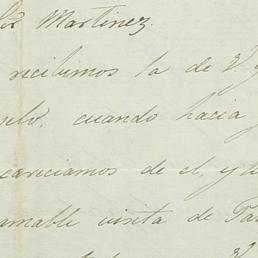 Martinez.
recibimos la de V.
cuando hacia
careciamos de el, y
amable visita de